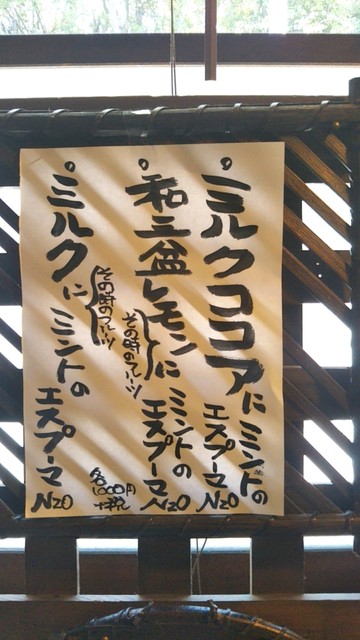 。ミルクココアに
ミントの
エスプーマ
N2O
。和三盆レモンに
その時のフルーツ
ミントの
エスプーマ
N2O
。ミルクに
その時のフルーツ
ミントの
エスプーマ
N2O
各1,000円
+税